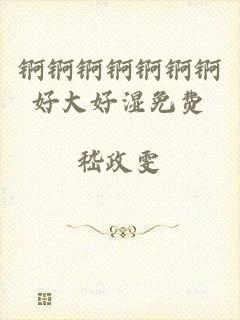 锕锕锕锕锕锕锕
好大好湿免费
嵇政雯